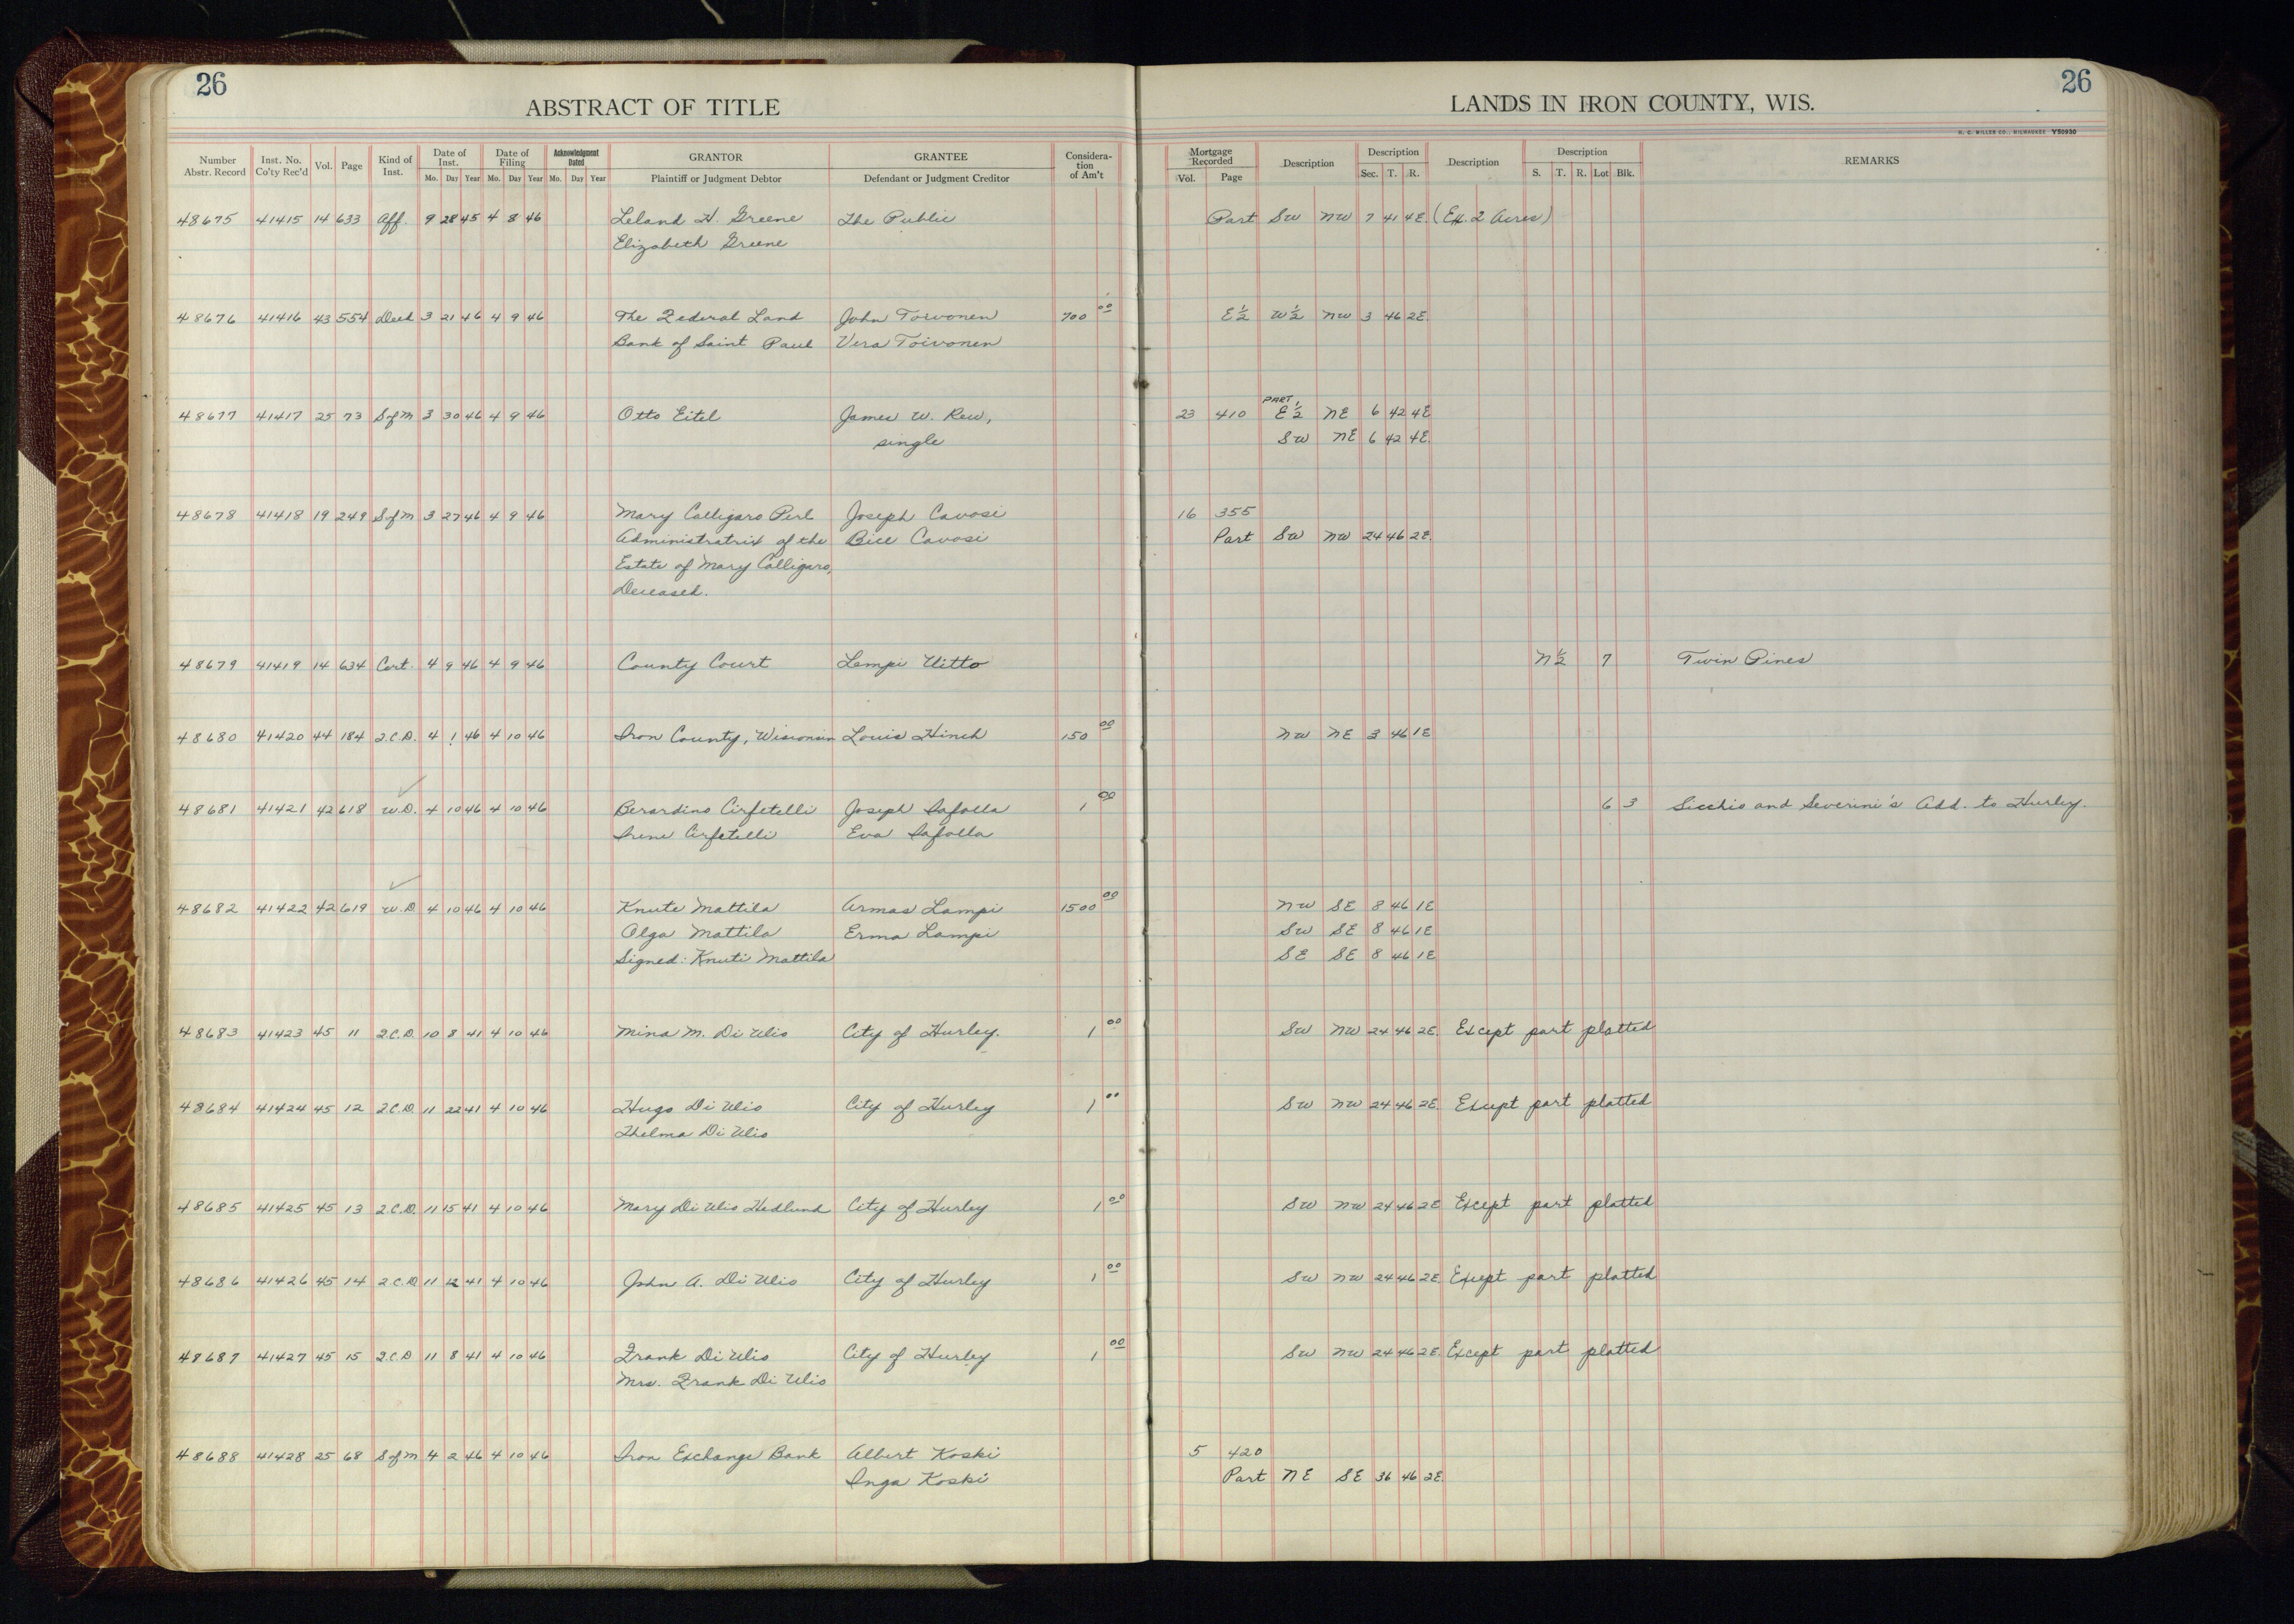 26
26
ABSTRACT OF TITLE
LANDS IN IRON COUNTY, WIS.
H. C. MILLER CO., MILWAUKEE Y50930
Number Abstr. Record | Inst. No. Co'ty Rec'd | Vol. | Page | Kind of Inst. | Date of Inst. Mo. Day Year | Date of Filing Mo. Day Year | Acknowledgment Dated Mo. Day Year | GRANTOR Plaintiff or Judgment Debtor | GRANTEE Defendant or Judgment Creditor | Considera-tion of Am't | Mortgage Recorded Vol. Page | Description | Description Sec. T. R. | Description | Description S. T. R. Lot Blk. | REMARKS
48675 41415 14 633 Aff. 9 28 45 4 8 46 Leland H. Greene The Public Part SW NW 7 41 4E. (Ex. 2 Acres)
Elizabeth Greene
48676 41416 43 554 Deed 3 21 46 4 9 46 The Federal Land John Toivonen 700 00 E½ W½ NW 3 46 2E.
Bank of Saint Paul Vera Toivonen
48677 41417 25 73 S of M 3 30 46 4 9 46 Otto Eitel James W. Rew, 23 410 PART E½ NE 6 42 4E
single SW NE 6 42 4E.
48678 41418 19 249 S of M 3 27 46 4 9 46 Mary Calligaro Perl Joseph Cavosi 16 355
Administratrix of the Bice Cavosi Part SW NW 24 46 2E.
Estate of Mary Calligaro,
Deceased.
48679 41419 14 634 Cert. 4 9 46 4 9 46 County Court Lempi Uitto N½ 7 Twin Pines
48680 41420 44 184 2.C.D. 4 1 46 4 10 46 Iron County, Wisconsin Louis Hinch 150 00 NW NE 3 46 1E
48681 41421 42 618 W.D. 4 10 46 4 10 46 Berardino Cirfetelli Joseph Iafolla 1 00 6 3 Sicchio and Severini's Add. to Hurley.
Irene Cirfetelli Eva Iafolla
48682 41422 42 619 W.D. 4 10 46 4 10 46 Knute Mattila Armas Lampi 1500 00 NW SE 8 46 1E
Olga Mattila Erma Lampi SW SE 8 46 1E
Signed: Knuti Mattila SE SE 8 46 1E
48683 41423 45 11 2.C.D. 10 8 41 4 10 46 Mina M. Di Ulio City of Hurley. 1 00 SW NW 24 46 2E. Except part platted
48684 41424 45 12 2.C.D. 11 22 41 4 10 46 Hugo Di Ulio City of Hurley 1 00 SW NW 24 46 2E. Except part platted
Thelma Di Ulio
48685 41425 45 13 2.C.D. 11 15 41 4 10 46 Mary Di Ulio Hedlund City of Hurley 1 00 SW NW 24 46 2E Except part platted
48686 41426 45 14 2.C.D. 11 12 41 4 10 46 John A. Di Ulio City of Hurley 1 00 SW NW 24 46 2E. Except part platted
48687 41427 45 15 2.C.D 11 8 41 4 10 46 Frank Di Ulio City of Hurley 1 00 SW NW 24 46 2E. Except part platted
Mrs. Frank Di Ulio
48688 41428 25 68 S of M 4 2 46 4 10 46 Iron Exchange Bank Albert Koski 5 420
Inga Koski Part NE SE 36 46 2E.